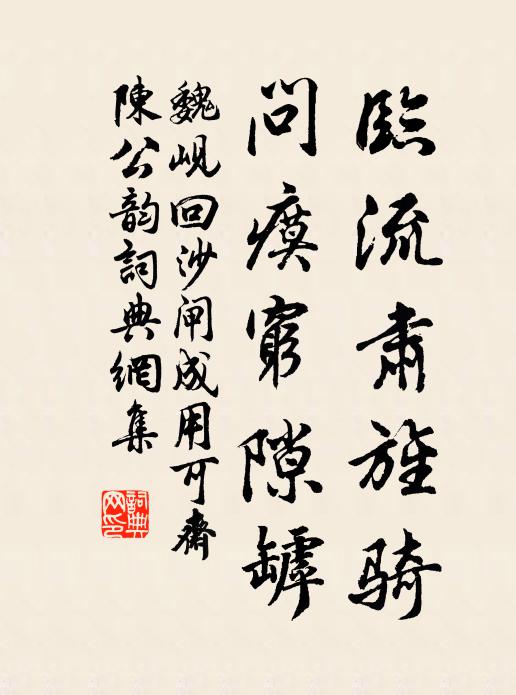 臨流肅旌騎
問瘼窮隙罅
魏峴回沙闸成用可齋
陳公韵詞典網集
詞典网印